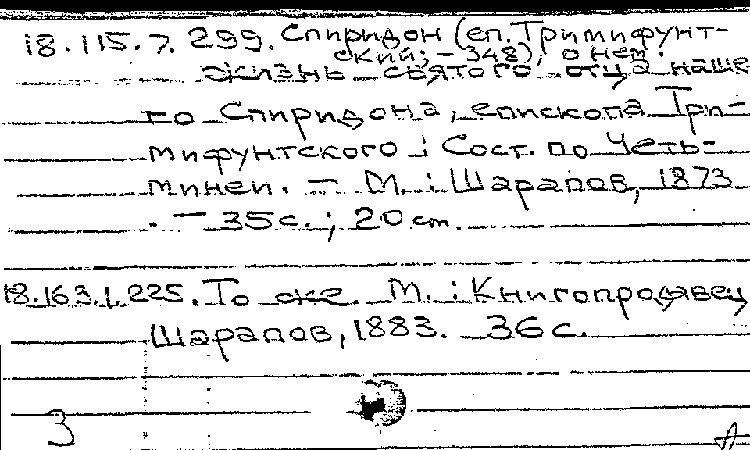 18.115.7.299. Спиридон (еп. Тримифунт-
ский; – 348), о нем.
Жизнь святого отца наше
го Спиридона, епископа Три-
мифунтского : Сост. по Четь-
минеи. – М. : Шарапов, 1873
. – 35 с. ; 20 см.
18.163.1.225. То же. М. : Книгопродавец
Шарапов, 1883. 36 с.
3